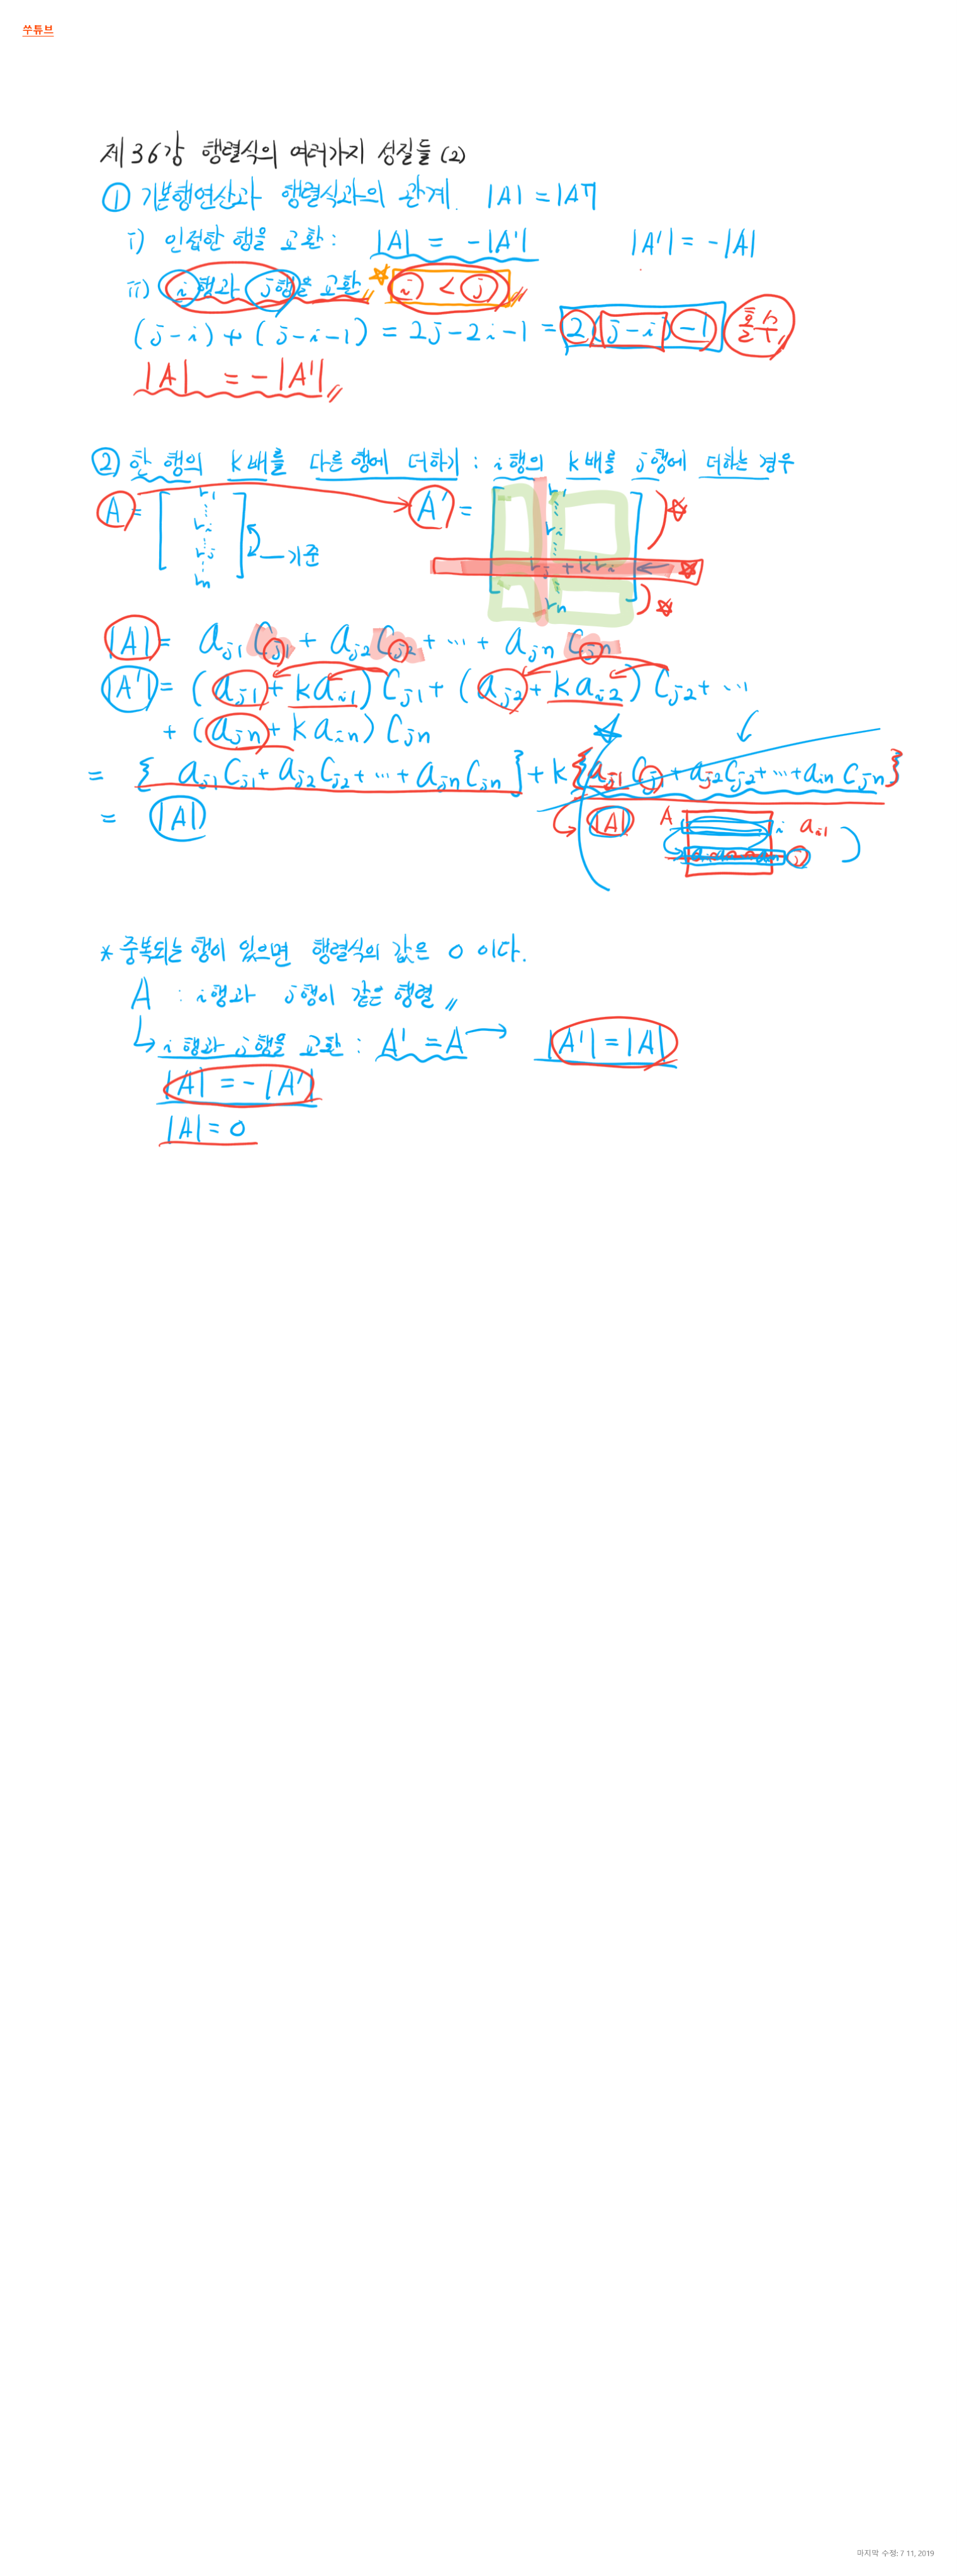 쑤튜브
제36강 행렬식의 여러가지 성질들 (2)
① 기본행연산과 행렬식과의 관계. |A| = |Aᵀ|
i) 인접한 행을 교환: |A| = -|A'| |A'| = -|A|
ii) i행과 j행을 교환 ☆ i < j
(j-i) + (j-i-1) = 2j-2i-1 = 2(j-i)-1 홀수
|A| = -|A'|
② 한 행의 k배를 다른 행에 더하기 : i행의 k배를 j행에 더하는 경우
A = [r₁ ⋮ rᵢ ⋮ rⱼ ⋮ rₙ] 기준 A' = [r₁ ⋮ rᵢ ⋮ rⱼ + krᵢ ⋮ rₙ]
|A| = aⱼ₁ Cⱼ₁ + aⱼ₂ Cⱼ₂ + ⋯ + aⱼₙ Cⱼₙ
|A'| = (aⱼ₁ + kaᵢ₁) Cⱼ₁ + (aⱼ₂ + kaᵢ₂) Cⱼ₂ + ⋯
+ (aⱼₙ + kaᵢₙ) Cⱼₙ
= { aⱼ₁Cⱼ₁ + aⱼ₂Cⱼ₂ + ⋯ + aⱼₙCⱼₙ } + k{aⱼ₁Cⱼ₁ + aⱼ₂Cⱼ₂ + ⋯ + aᵢₙCⱼₙ}
= |A| |A| A i aᵢ₁
j
* 중복되는 행이 있으면 행렬식의 값은 0 이다.
A : i행과 j행이 같은 행렬
i행과 j행을 교환 : A' = A → |A'| = |A|
|A| = -|A'|
|A| = 0
마지막 수정: 7 11, 2019